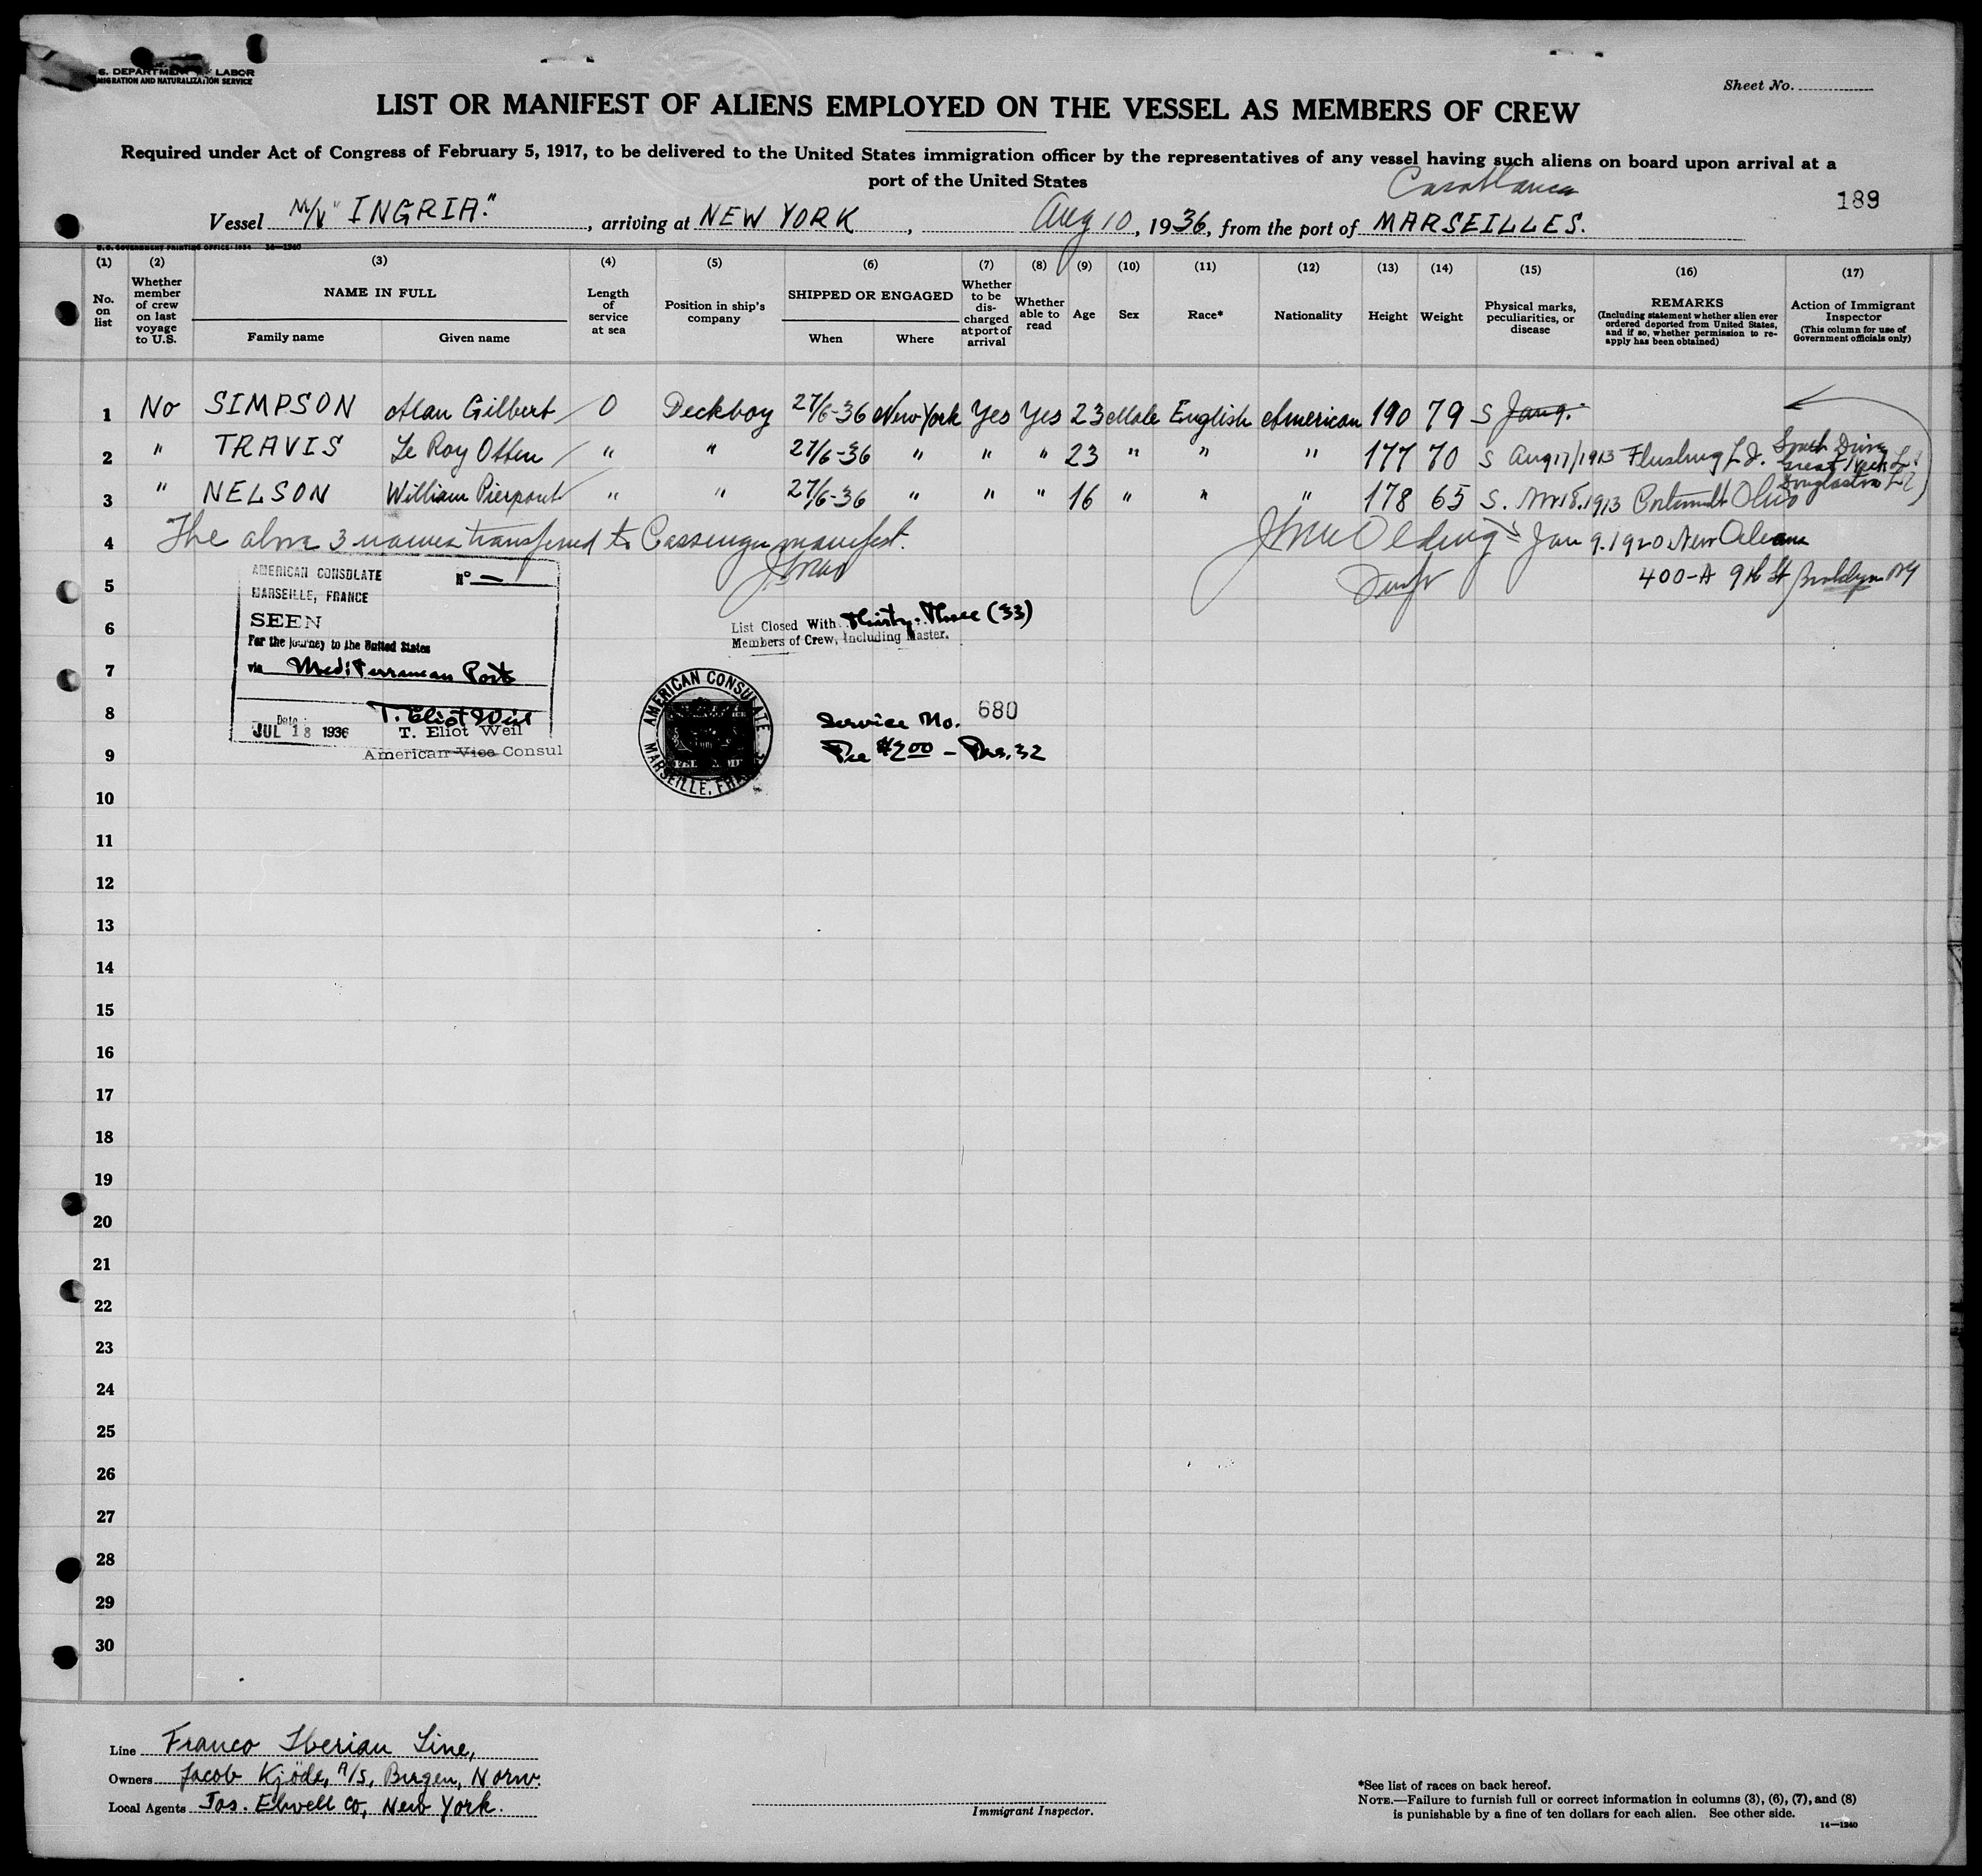 U.S. DEPARTMENT OF LABOR
IMMIGRATION AND NATURALIZATION SERVICE
Sheet No.
LIST OR MANIFEST OF ALIENS EMPLOYED ON THE VESSEL AS MEMBERS OF CREW
Required under Act of Congress of February 5, 1917, to be delivered to the United States immigration officer by the representatives of any vessel having such aliens on board upon arrival at a
port of the United States
Casablanca
189
Vessel M/V "INGRIA", arriving at NEW YORK, Aug 10, 1936, from the port of MARSEILLES.
U.S. GOVERNMENT PRINTING OFFICE: 1934 14—1240
(1) (2) (3) (4) (5) (6) (7) (8) (9) (10) (11) (12) (13) (14) (15) (16) (17)
No. on list
Whether member of crew on last voyage to U.S.
NAME IN FULL
Family name Given name
Length of service at sea
Position in ship's company
SHIPPED OR ENGAGED
When Where
Whether to be discharged at port of arrival
Whether able to read
Age
Sex
Race*
Nationality
Height
Weight
Physical marks, peculiarities, or disease
REMARKS
(Including statement whether alien ever ordered deported from United States, and if so, whether permission to reapply has been obtained)
Action of Immigrant Inspector
(This column for use of Government officials only)
1 No SIMPSON Alan Gilbert 0 Deckboy 27/6-36 New York Yes Yes 23 Male English American 190 79 S Jan 9.
2 " TRAVIS Le Roy Otten " " 27/6-36 " " " 23 " " " 177 70 S Aug 17/1913 Flushing L.I. South Drive Great Neck L.I.
3 " NELSON William Pierpont " " 27/6-36 " " " 16 " " " 178 65 S. 1913 Portsmouth Ohio Douglaston L.I.
4 The above 3 names transferred to Passenger manifest. Jan 9. 1920 New Orleans
5 400-A 9th St Brooklyn NY
AMERICAN CONSULATE No —
MARSEILLE, FRANCE
SEEN
For the journey to the United States
via Mediterranean Ports
T. Eliot Weil
Date: JUL 18 1936 T. Eliot Weil
American Vice Consul
List Closed With Thirty-Three (33)
Members of Crew, Including Master.
AMERICAN CONSULATE
MARSEILLE, FRANCE
Service No. 680
Fee $2.00 —
6
7
8
9
10
11
12
13
14
15
16
17
18
19
20
21
22
23
24
25
26
27
28
29
30
Line Franco Iberian Line,
Owners Jacob Kjöde, A/S, Bergen, Norw.
Local Agents Jas. Elwell Co, New York.
Immigrant Inspector.
*See list of races on back hereof.
NOTE.—Failure to furnish full or correct information in columns (3), (6), (7), and (8)
is punishable by a fine of ten dollars for each alien. See other side.
14—1240